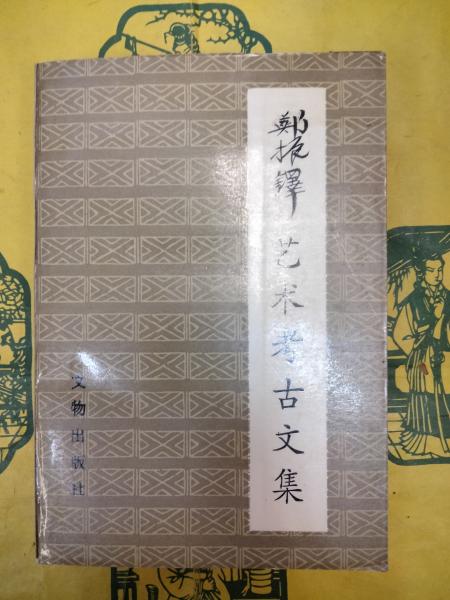 鄭振鐸艺术考古文集
文物出版社